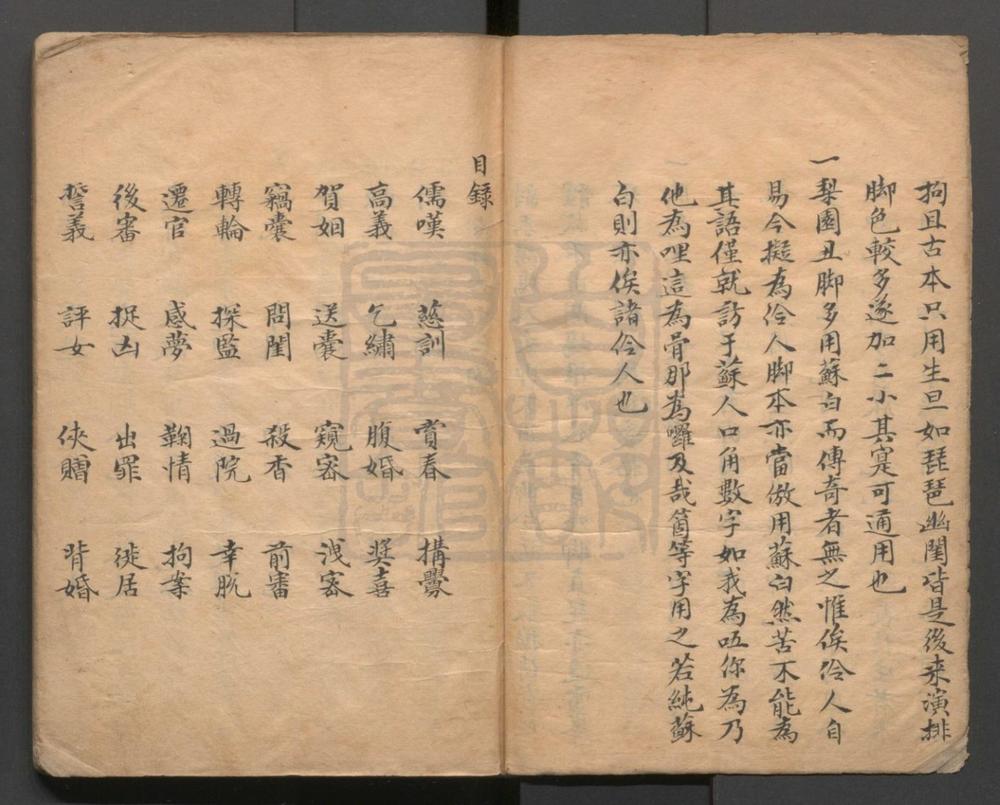 拘且古本只用生旦如琵琶幽閨皆是後来演排
脚色較多遂加二小其寔可通用也
一梨園丑脚多用蘇白而傳奇者無之惟俟伶人自
易今擬為伶人脚本亦當倣用蘇白然苦不能為
其語僅就訪于蘇人口角數字如我為唔你為乃
他為哩這為骨那為囉及哉箇等字用之若純蘇
白則亦俟諸伶人也
目録
儒嘆 慈訓 賞春 搆釁
高義 乞繡 腹婚 奨喜
賀姻 送囊 窺密 洩密
竊囊 問閨 殺香 前審
轉輪 探監 過院 幸脫
遷官 感夢 鞠情 拘案
後審 捉凶 出罪 徙居
誓義 評女 俠贈 背婚